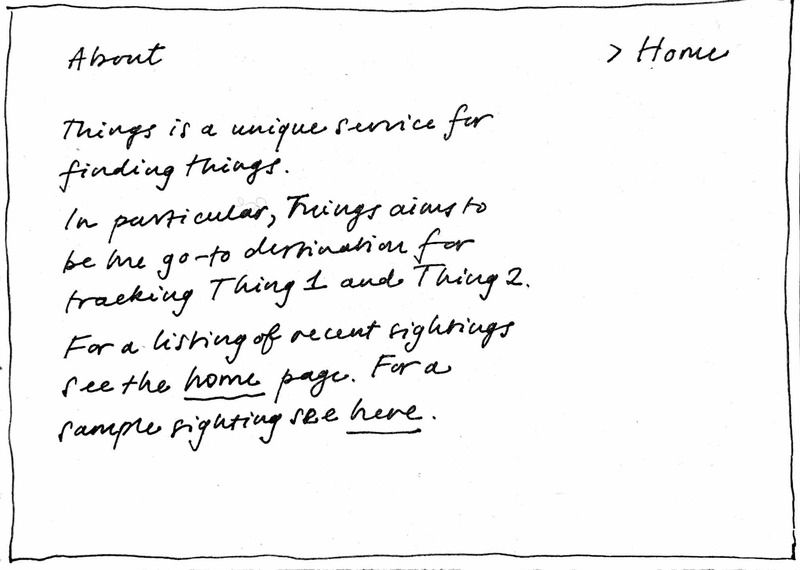 About
> Home
Things is a unique service for
finding things.
In particular, Things aims to
be the go-to destination for
tracking Thing 1 and Thing 2.
For a listing of recent sightings
see the home page. For a
sample sighting see here.